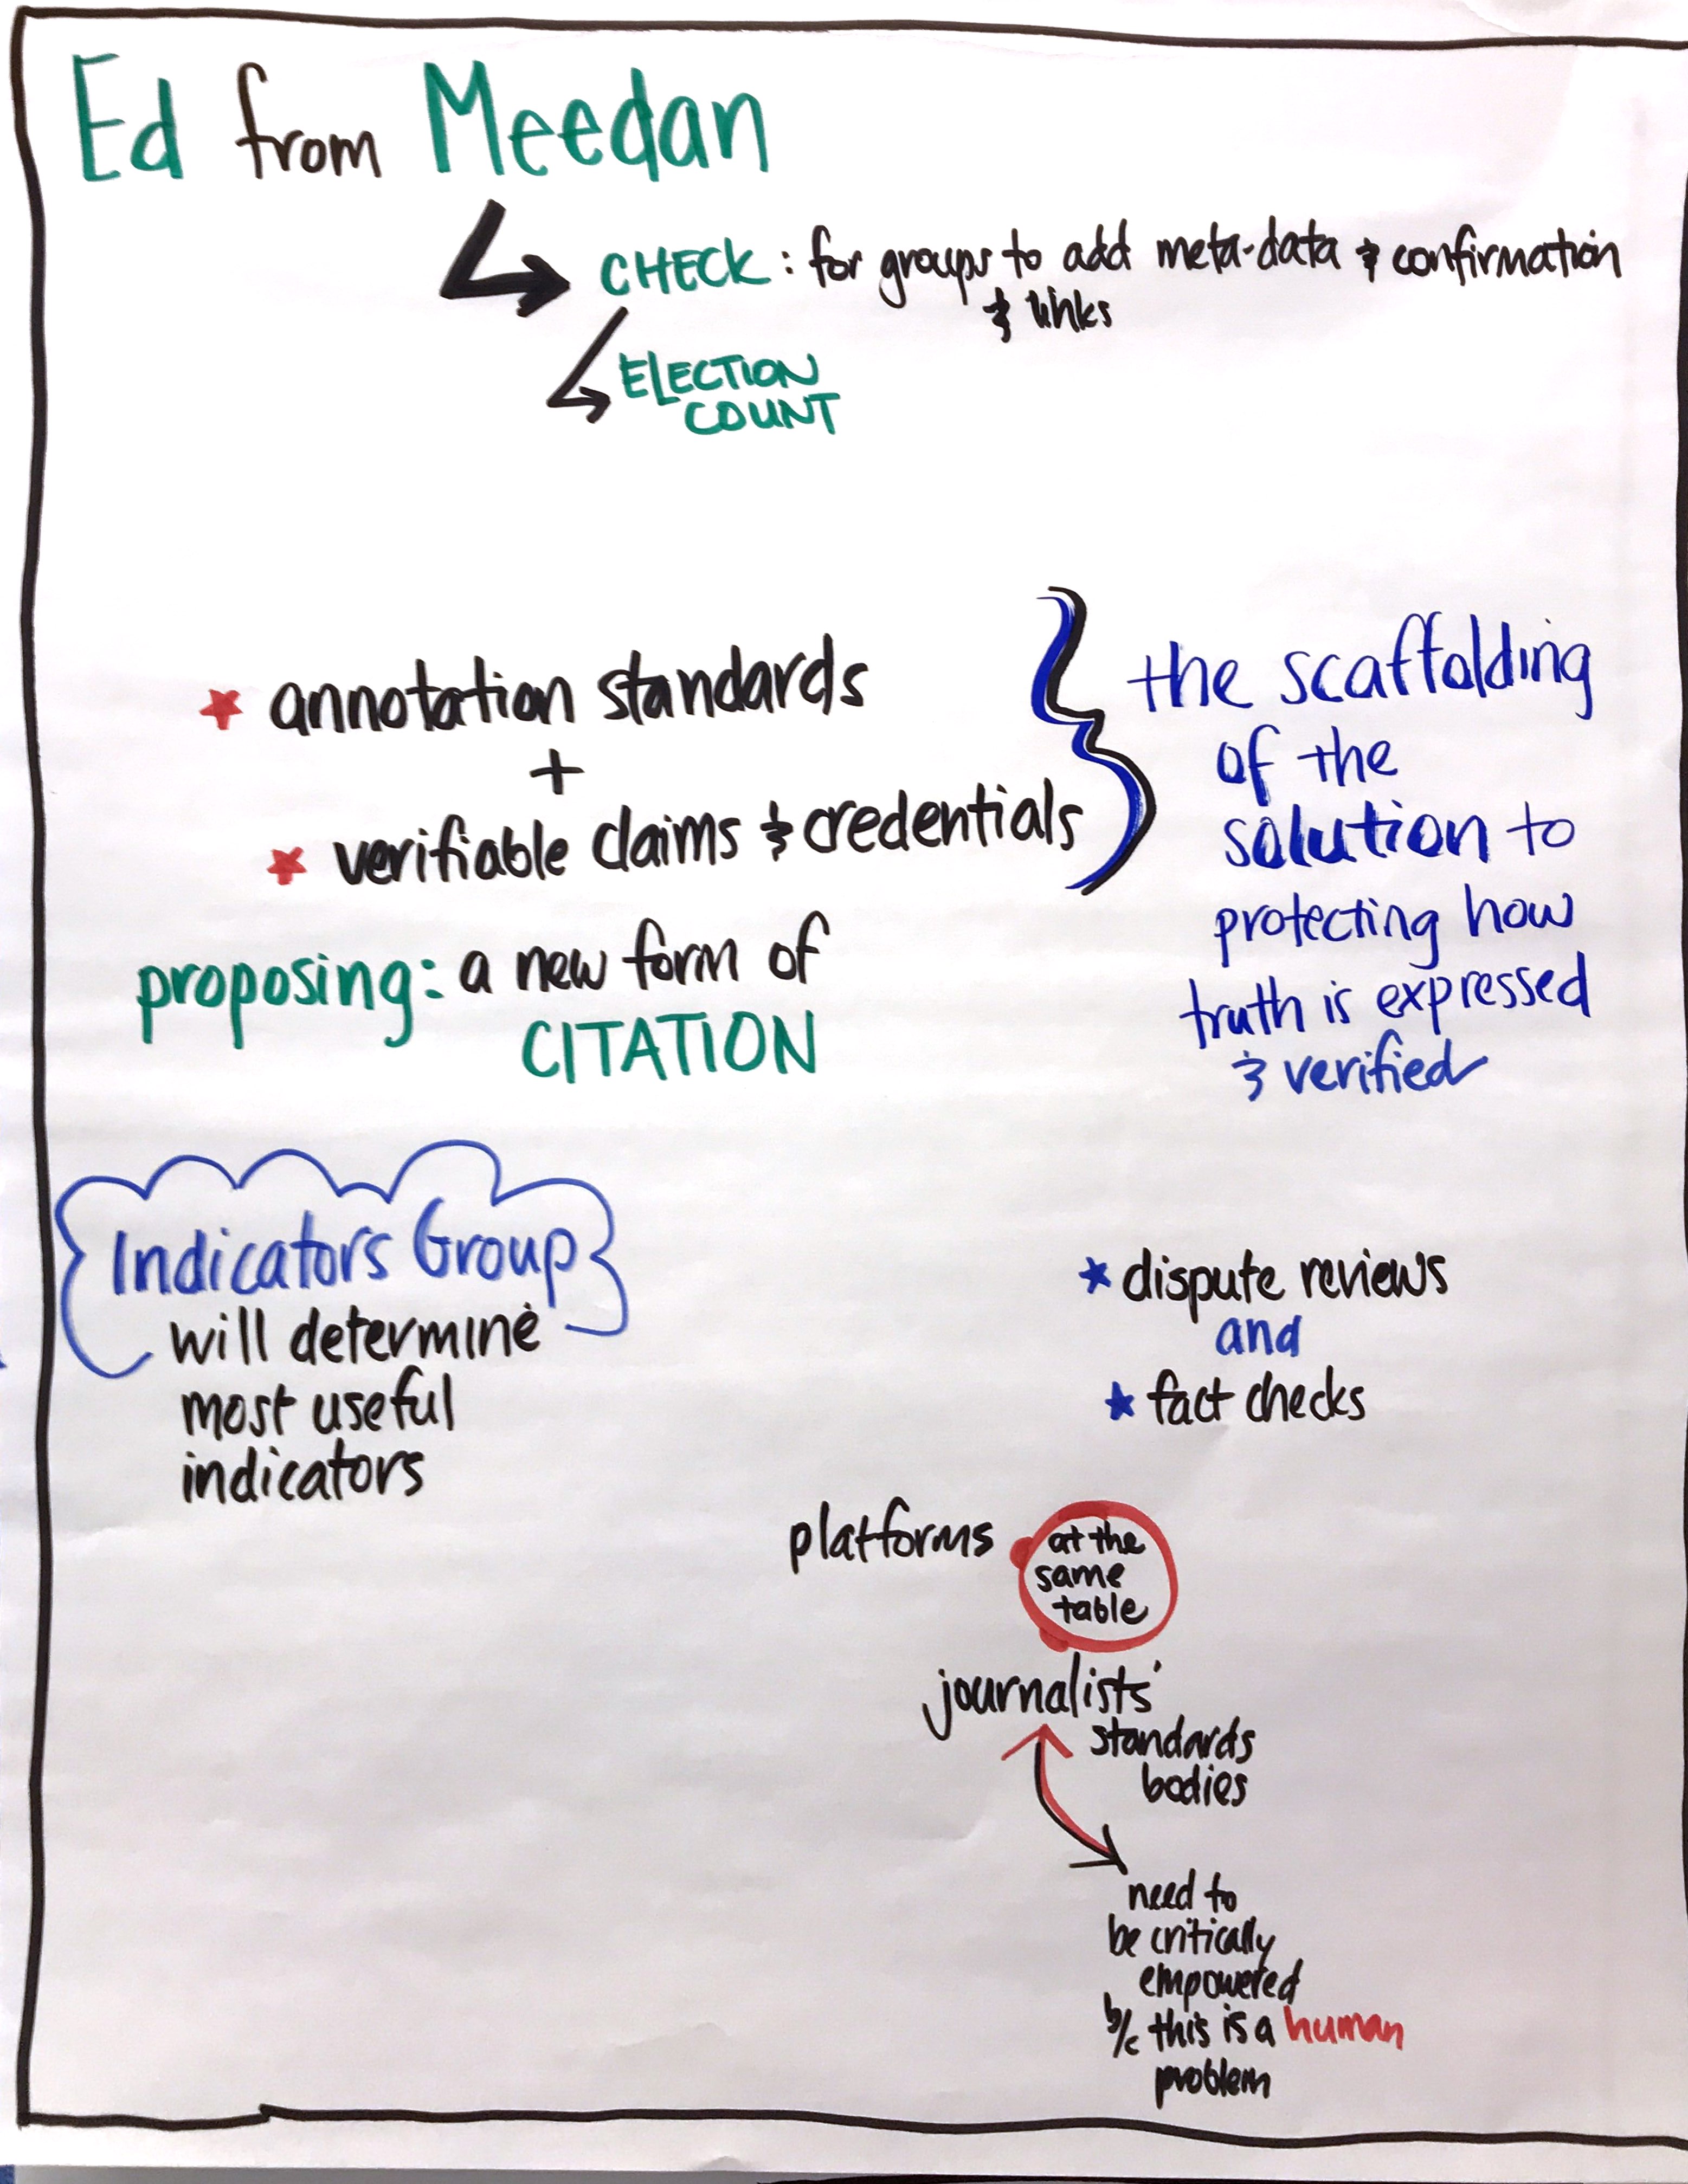 Ed from Meedan
CHECK: for groups to add meta-data & confirmation
& links
ELECTION
COUNT
★ annotation standards
+
★ verifiable claims & credentials
the scaffolding
of the
solution to
protecting how
truth is expressed
& verified
proposing: a new form of
CITATION
Indicators Group
will determine
most useful
indicators
★ dispute reviews
and
★ fact checks
platforms
at the
same
table
journalists'
standards
bodies
need to
be critically
empowered
b/c this is a human
problem